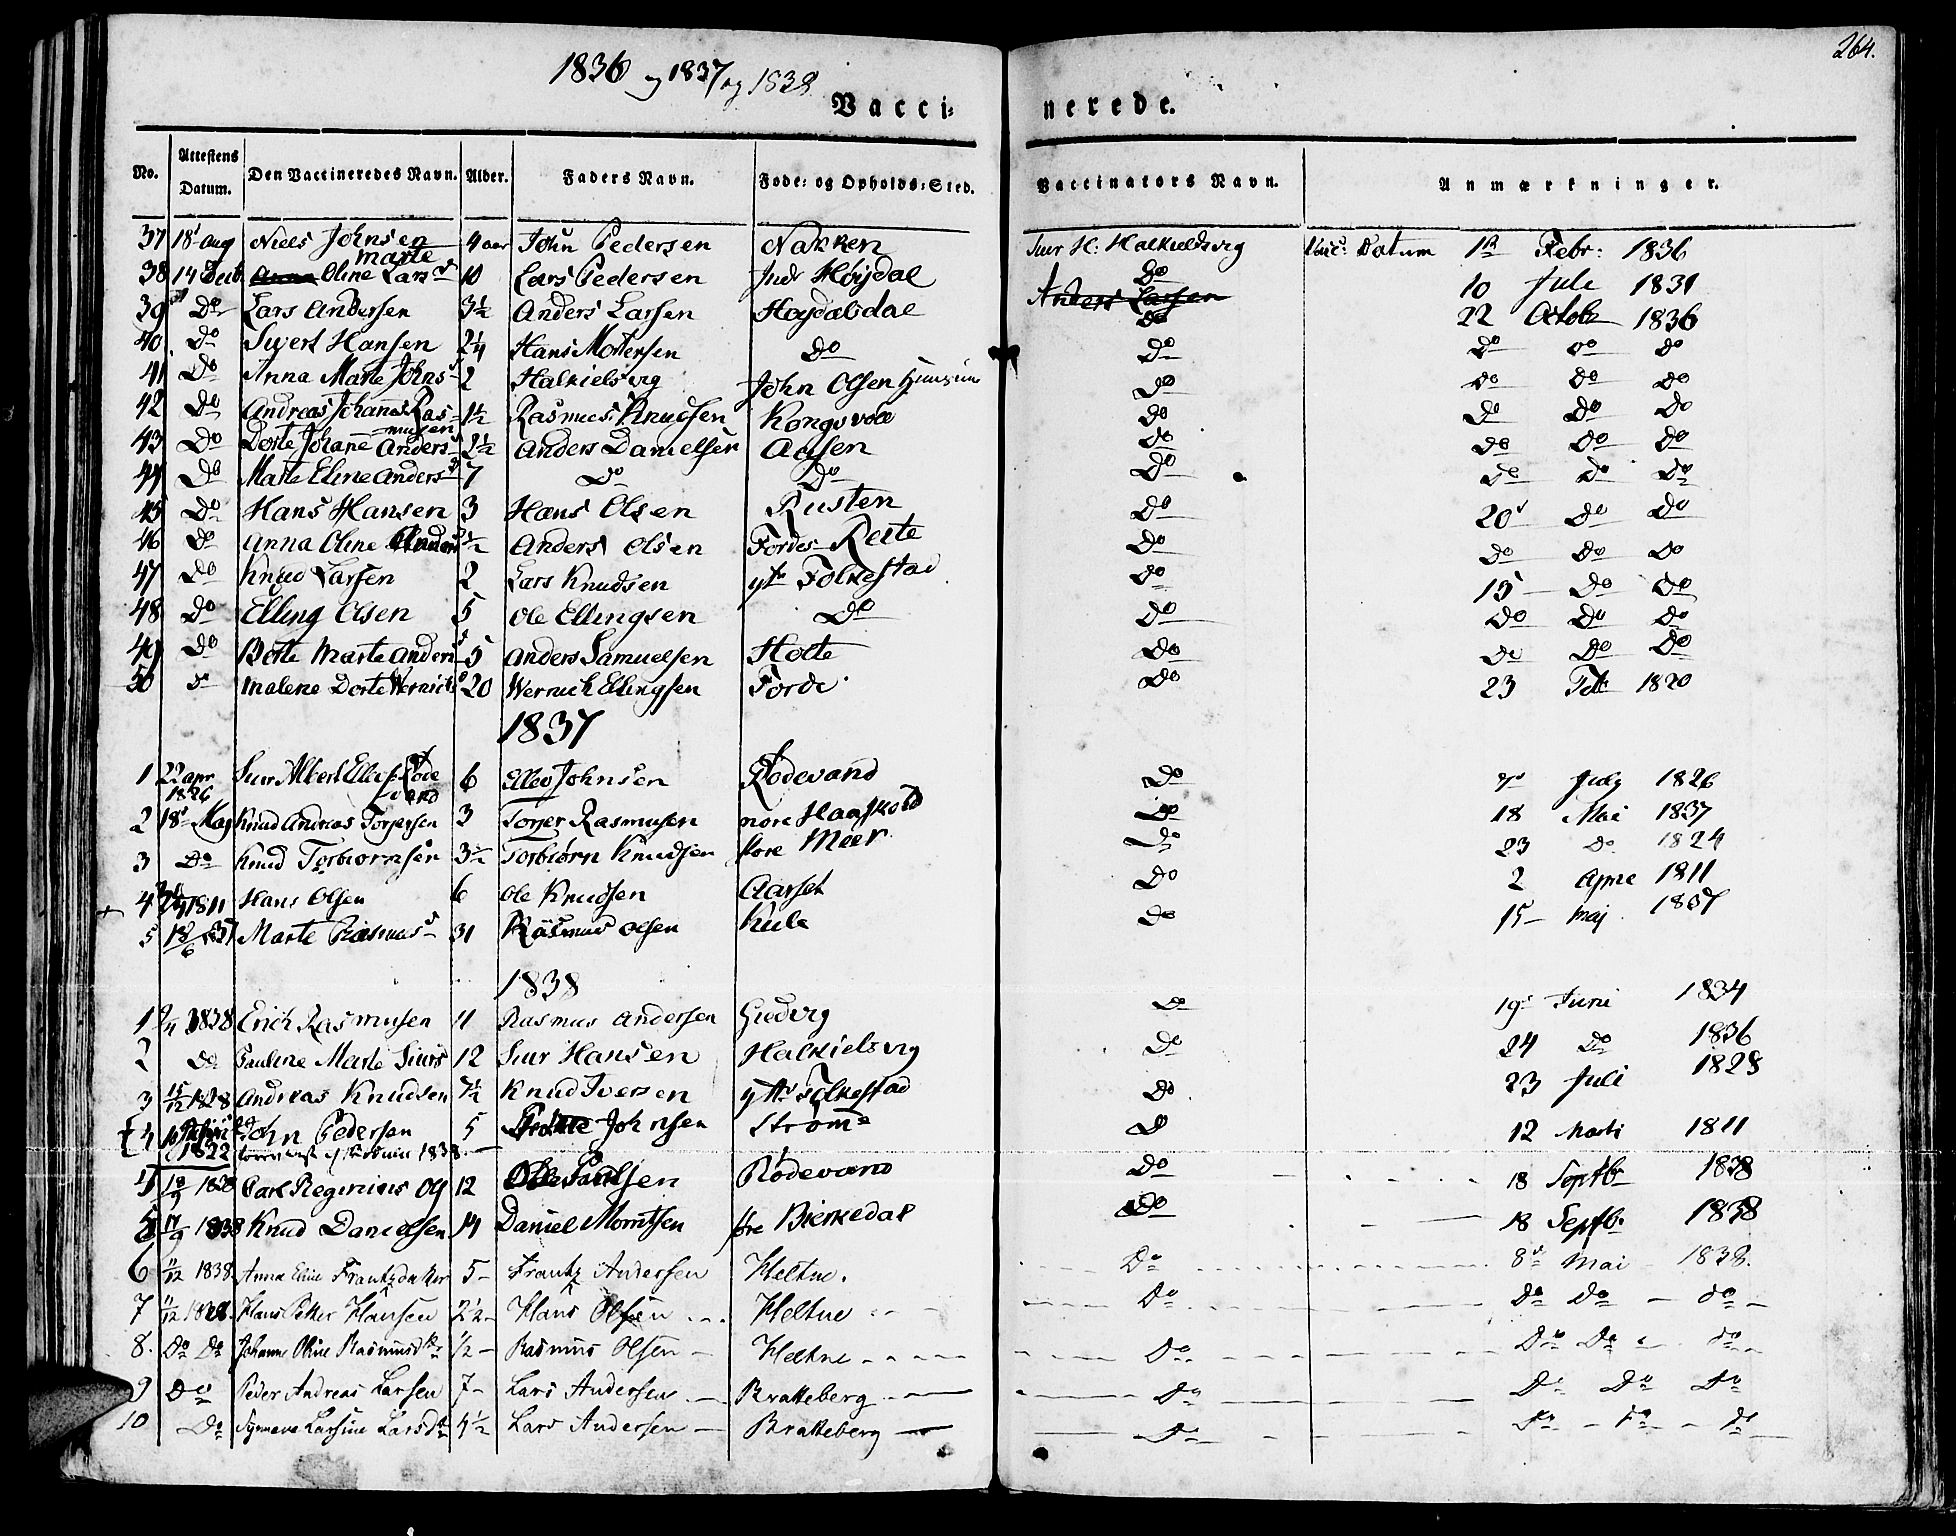 264.
1836 og 1837 og 1838
Vacci- nerede.
No. | Attestens Datum. | Den Vaccineredes Navn. | Alder. | Faders Navn. | Føde- og Opholds-Sted. | Vaccinators Navn. | Anmærkninger.
37 | 18 Aug | Niels Johnsen | 4 aar | John Pedersen | Nakken | Siur H: Halkieldsvig | Vacc: Datum 1 Febr: 1836
38 | 14 Decb | Anna Marte Oline Larsd | 10 | Lars Pedersen | Indr Høydal | Do | 10 Juli 1831
39 | Do | Lars Andersen | 3½ | Anders Larsen | Høydalsdal | Anders Larsen Do | 22 Octob 1836
40 | Do | Sivert Hansen | 2¼ | Hans Mortensen | Do | Do | Do Do Do
41 | Do | Anna Marte Johnsd | 2 | Halkielsvig | John Olsen | Do | Do Do Do
42 | Do | Andreas Johannes Rasmusen | 1½ | Rasmus Knudsen | Kongsvold | Do | Do Do Do
43 | Do | Dorte Johane Andersd | 2½ | Anders Danielsen | Aasen | Do | Do Do Do
44 | Do | Marte Eline Andersd | 7 | Do | Do | Do | Do Do Do
45 | Do | Hans Hansen | 3 | Hans Olsen | Rusten | Do | 20 Do Do
46 | Do | Anna Oline Anders | ½ | Anders Olsen | Fordes Reite | Do | Do Do Do
47 | Do | Knud Larsen | 2 | Lars Knudsen | ytr Folkestad | Do | 15 Do Do
48 | Do | Elling Olsen | 5 | Ole Ellingsen | Do | Do | Do Do Do
49 | Do | Berte Marte Andersd | 5 | Anders Samuelsen | Holte | Do | Do Do Do
50 | Do | Malene Dorte Wernichsd | 20 | Wernich Ellingsen | Forde | Do | 23 Feb 1820
1837
1 | 22 apr 1826 | Siur Albert Ellefs Rødevand | 6 | Ellev Johnsen | Rødevand | Do | 7 July 1826
2 | 18 May | Knud Andreas Torgersen | 3 | Torger Rasmusen | nore Haaskold | Do | 18 Mai 1837
3 | Do | Knud Torbiørnsen | 3½ | Torbiørn Knudsen | store Meer | Do | 23 Do 1824
4 | 1811 | Hans Olsen | 6 | Ole Knudsen | Aarset | Do | 2 Apr 1811
5 | 18/6 1837 | Marte Rasmusd | 31 | Rasmus Olsen | Kule | Do | 15 Maj 1837
1838
1 | 1838 | Erich Rasmusen | 11 | Rasmus Andersen | Giedvig | Do | 19 Juni 1834
2 | Do | Pauline Marte Siurs | 12 | Siur Hansen | Halkielsvig | Do | 24 Do 1836
3 | 15/12 1828 | Andreas Knudsen | 7½ | Knud Iversen | ytr Folkestad | Do | 23 Juli 1828
4 | 1822 | John Pedersen | 5 | Johnsen | Strøm | D | 12 Marts 1811
4 | 10/9 1838 | Carl Reginius Ols | 12 | Ole Paulsen | Rødevand | Do | 18 Septbr 1838
5 | 17/9 1838 | Knud Danielsen | 14 | Daniel Moritsen | store Bierkedal | Do | 18 Septb. 1838
6 | 11/12 1838. | Anna Eline Frantzdatter | 5 | Frantz Andersen | Heltne. | Do | 8 Mai 1838.
7 | 11/12 1838. | Hans Petter Hansen | 2½ | Hans Olsen | Heltne | Do | Do Do do
8. | Do Do | Johanne Oline Rasmusdtr | ½ | Rasmus Olsen | Heltne | Do | Do Do do
9 | Do | Peder Andreas Larsen | 7 | Lars Andersen | Bratteberg | Do | Do Do Do
10 | Do | Larsine Larsdtr | 4½ | Lars Andersen | Bratteberg | Do | Do Do Do